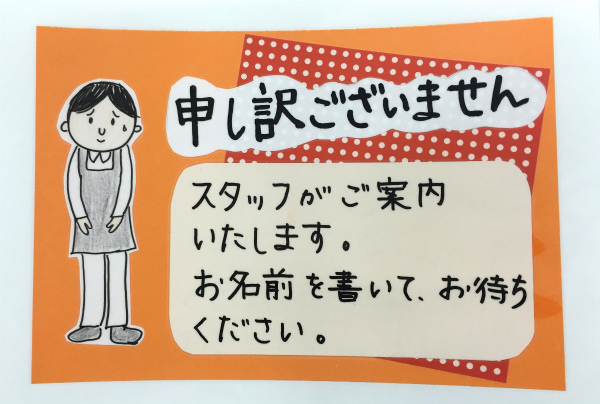 申し訳ございません
スタッフがご案内
いたします。
お名前を書いて、お待ち
ください。